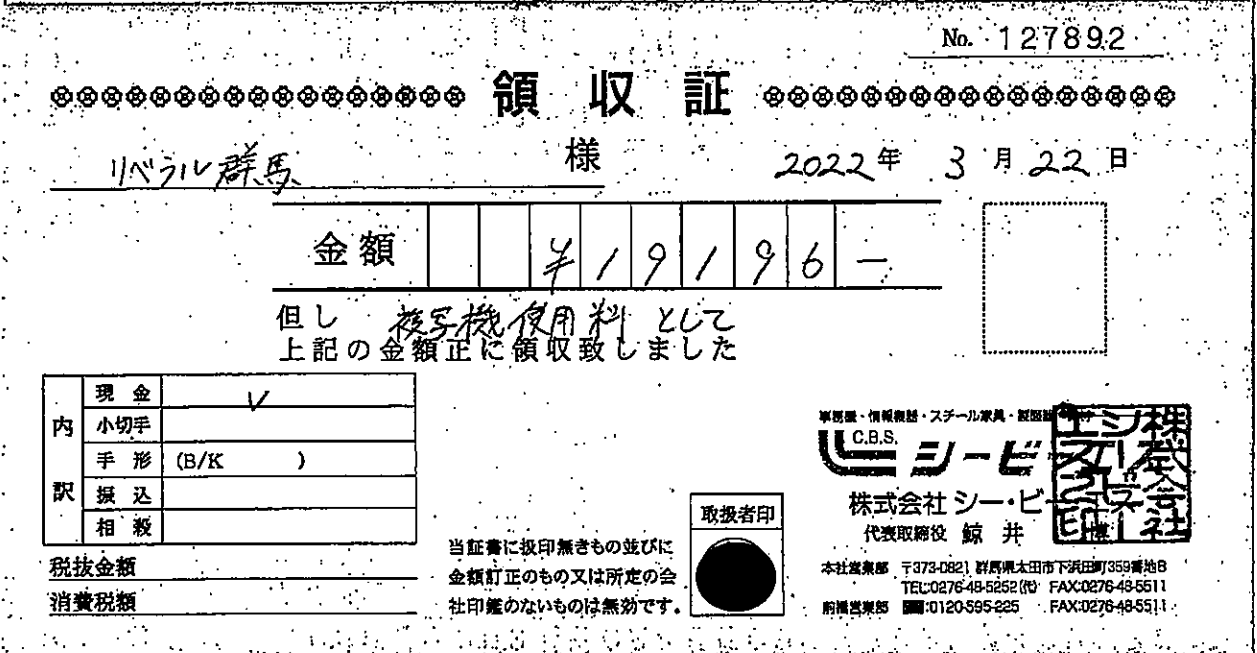 No. 127892
領収証
リベラル群馬 様
2022年 3月 22日
金額 ¥19196-
但し 複写機使用料 として
上記の金額正に領収致しました
内訳
現金 V
小切手
手形 (B/K )
振込
相殺
税抜金額
消費税額
当証書に扱印無きもの並びに
金額訂正のもの又は所定の会
社印鑑のないものは無効です。
取扱者印
事務機・情報機器・スチール家具・
C.B.S.
シービー
株式会社 シー・ビー
代表取締役 鯨井 博
本社営業部 〒373-0821 群馬県太田市下浜田町359番地8
TEL:0276-48-5252(代) FAX:0276-48-5511
前橋営業部 :0120-595-225 FAX:0276-48-5511